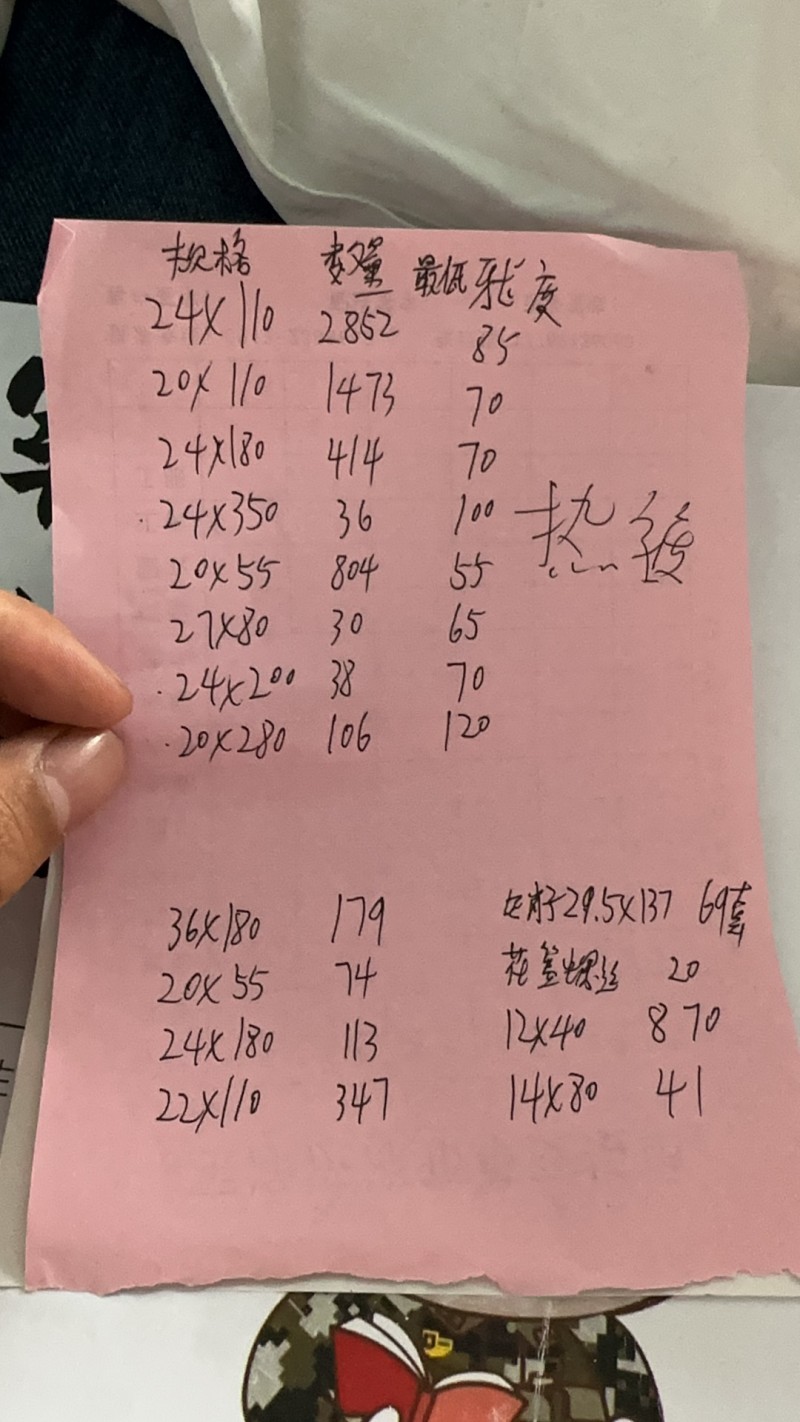 规格 数量 最低牙长度
24X110 2852 85
20X110 1473 70
24X180 414 70
·24X350 36 100 热镀
20X55 804 55
27X80 30 65
·24X200 38 70
·20X280 106 120
36X180 179 29.5X137 69套
20X55 74 花篮螺丝 20
24X180 113 12X40 870
22X110 347 14X80 41